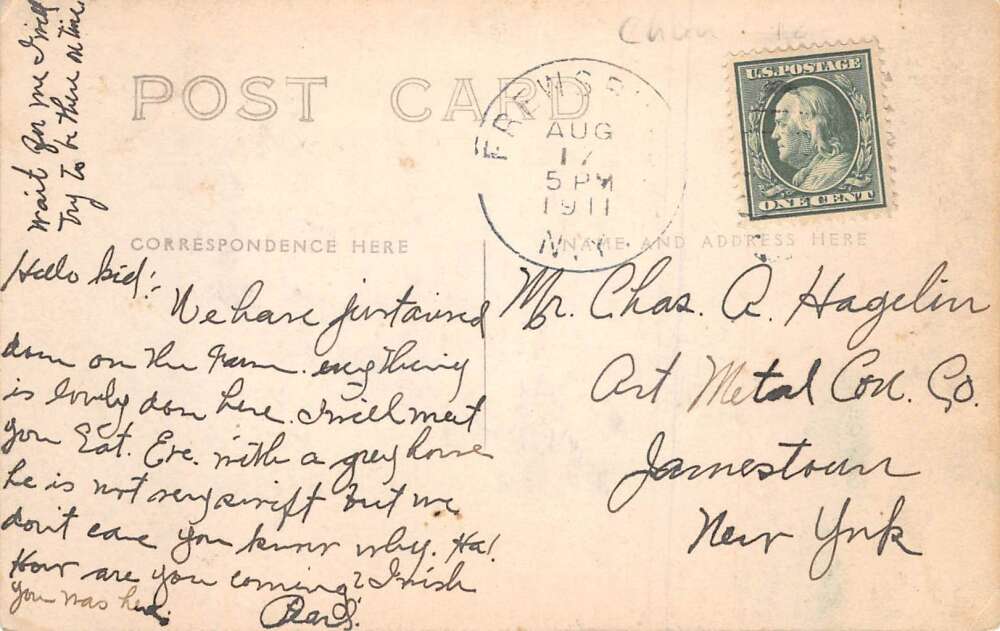 wait for me I will
try to be there on time.
POST CARD
FREWSB
AUG
17
5 PM
1911
N.Y.
U.S. POSTAGE
ONE CENT
CORRESPONDENCE HERE
NAME AND ADDRESS HERE
Hello kid!
We have just arrived
down on the Farm. everything
is lovely down here. I will meet
you Sat. Eve. with a grey horse
he is not very swift but we
don't care you know why. Ha!
How are you coming? I wish
you was here.
Pearl.
Mr. Chas. A. Hagelin
Art Metal Con. Co.
Jamestown
New York